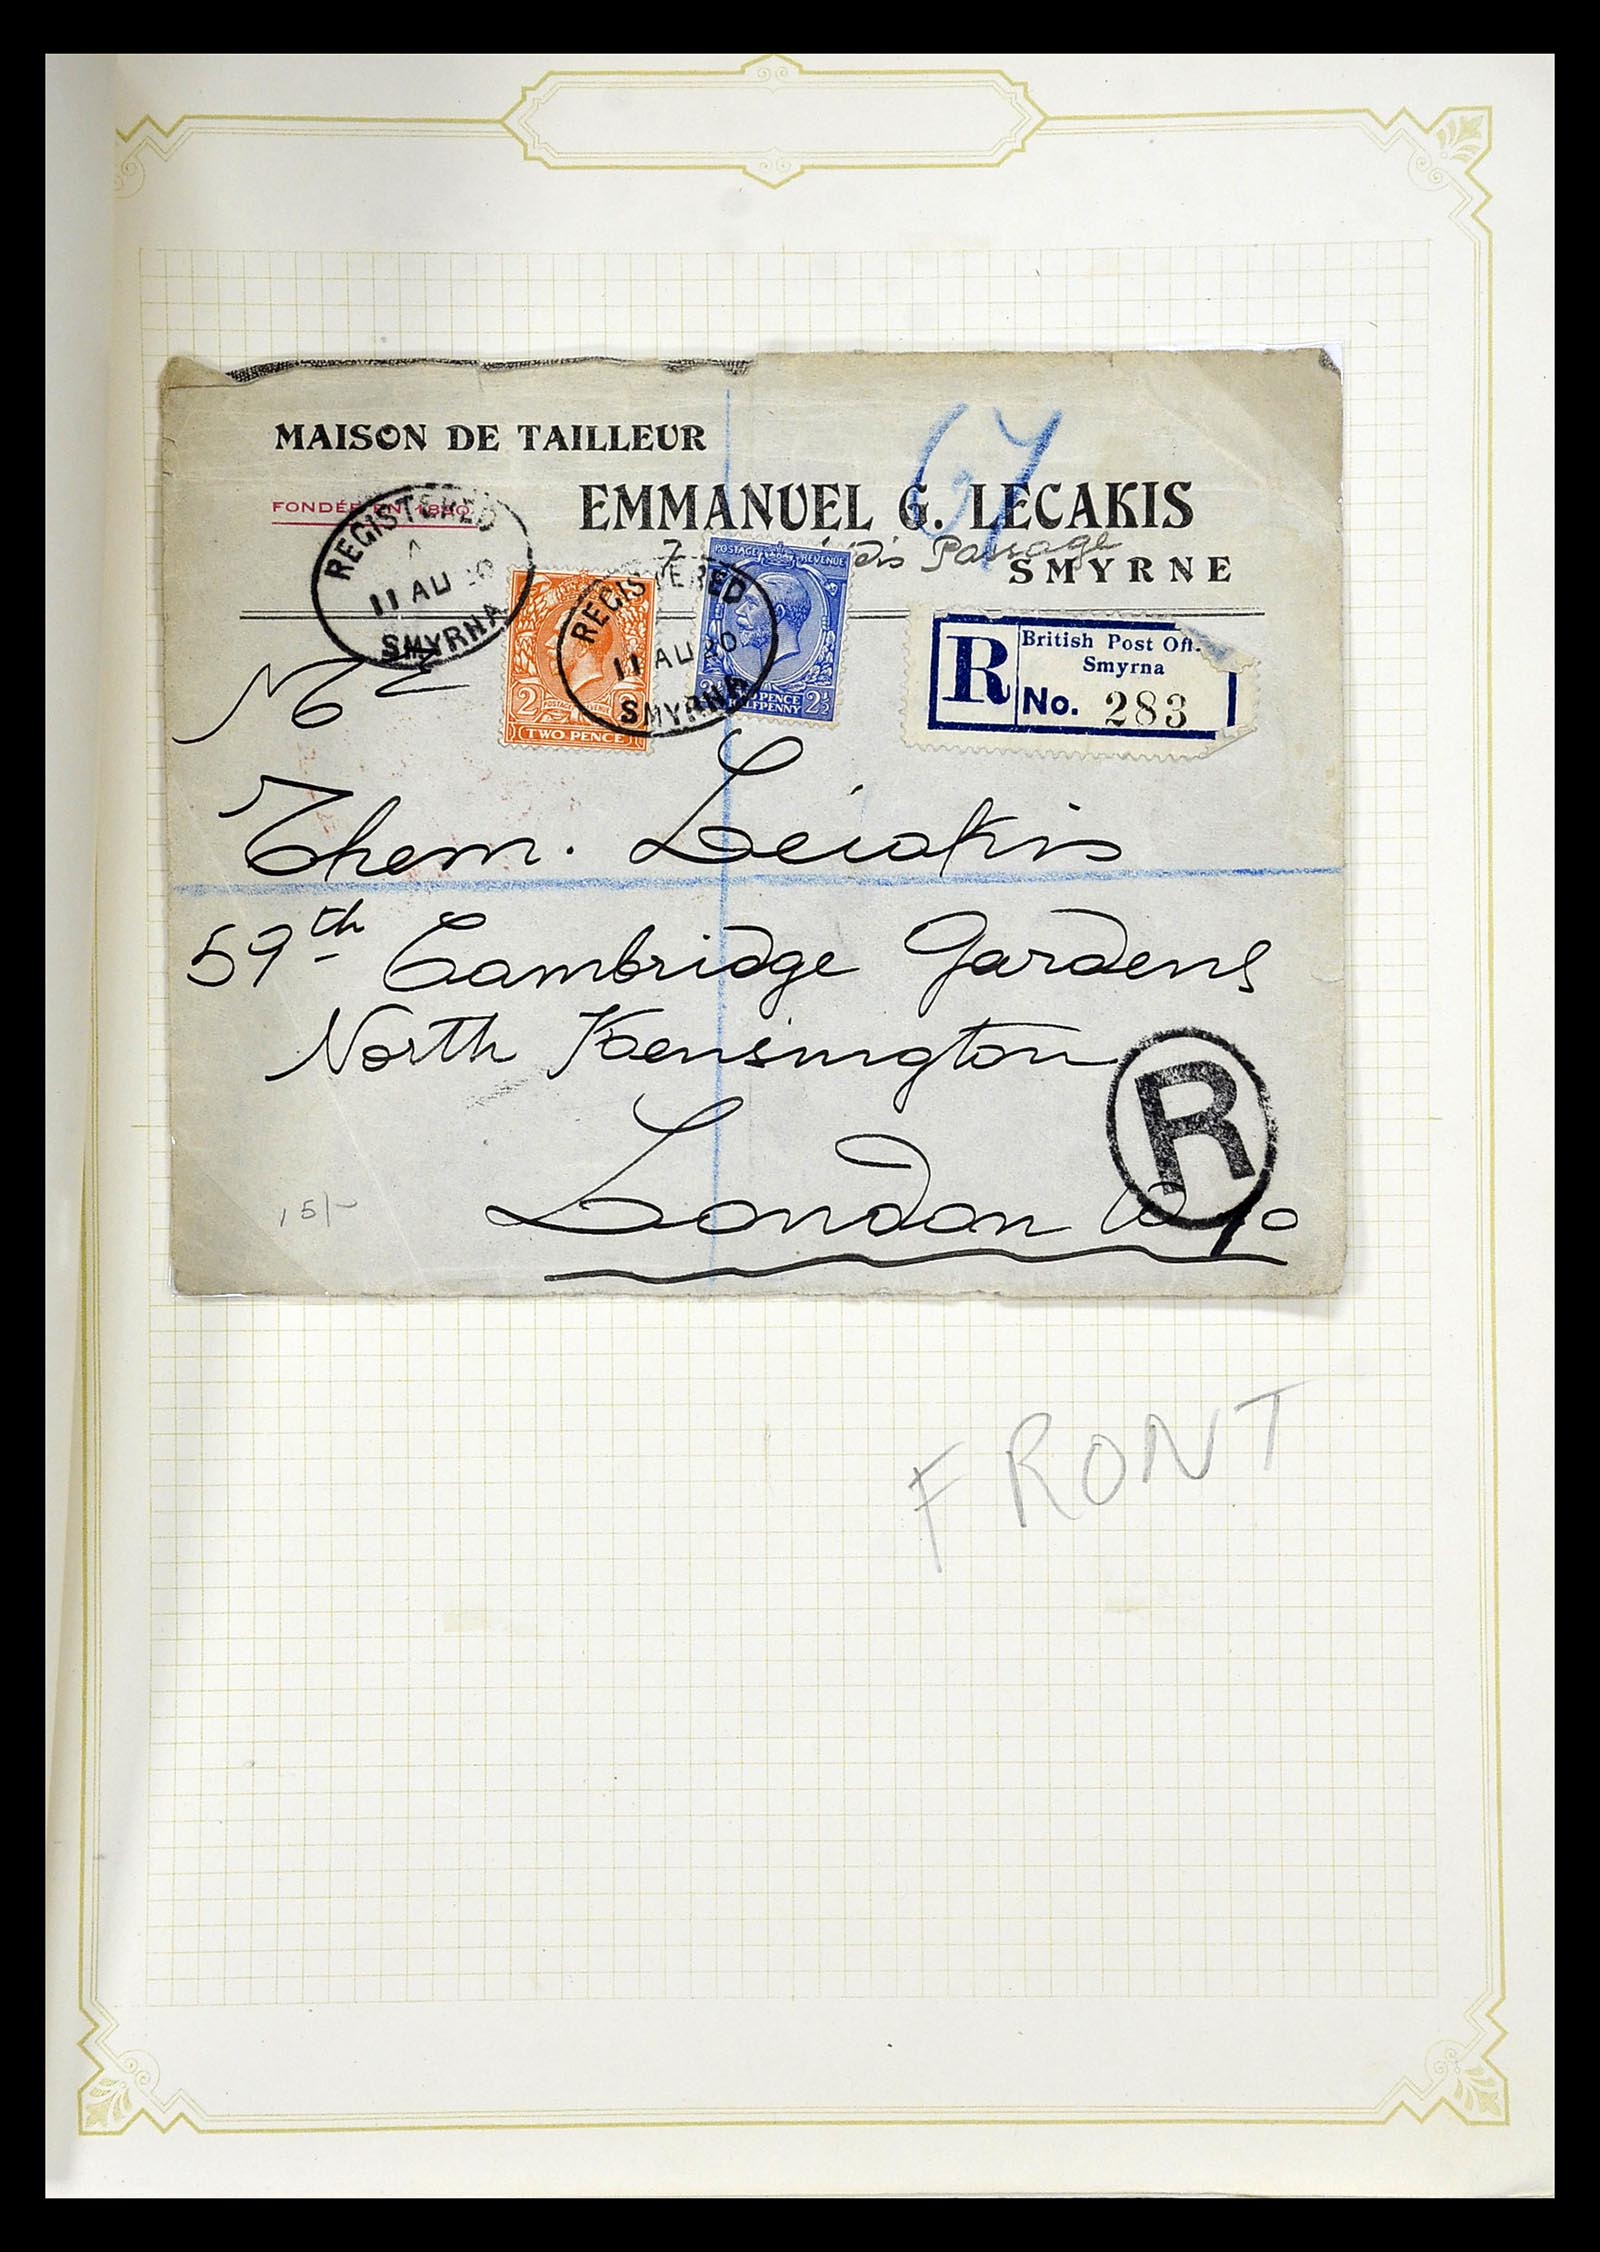 MAISON DE TAILLEUR
FONDÉE EN 1880
EMMANUEL G. LECAKIS
Passage
SMYRNE
67
REGISTERED
A
11 AU 20
SMYRNA
REGISTERED
11 AU 20
SMYRNA
POSTAGE REVENUE
2 2
TWO PENCE
POSTAGE REVENUE
PENCE
HALFPENNY 2½
R
British Post Off.
Smyrna
No. 283
Mr
Them. Lecakis
59th Cambridge Gardens
North Kensington
London W 10
R
15/-
FRONT